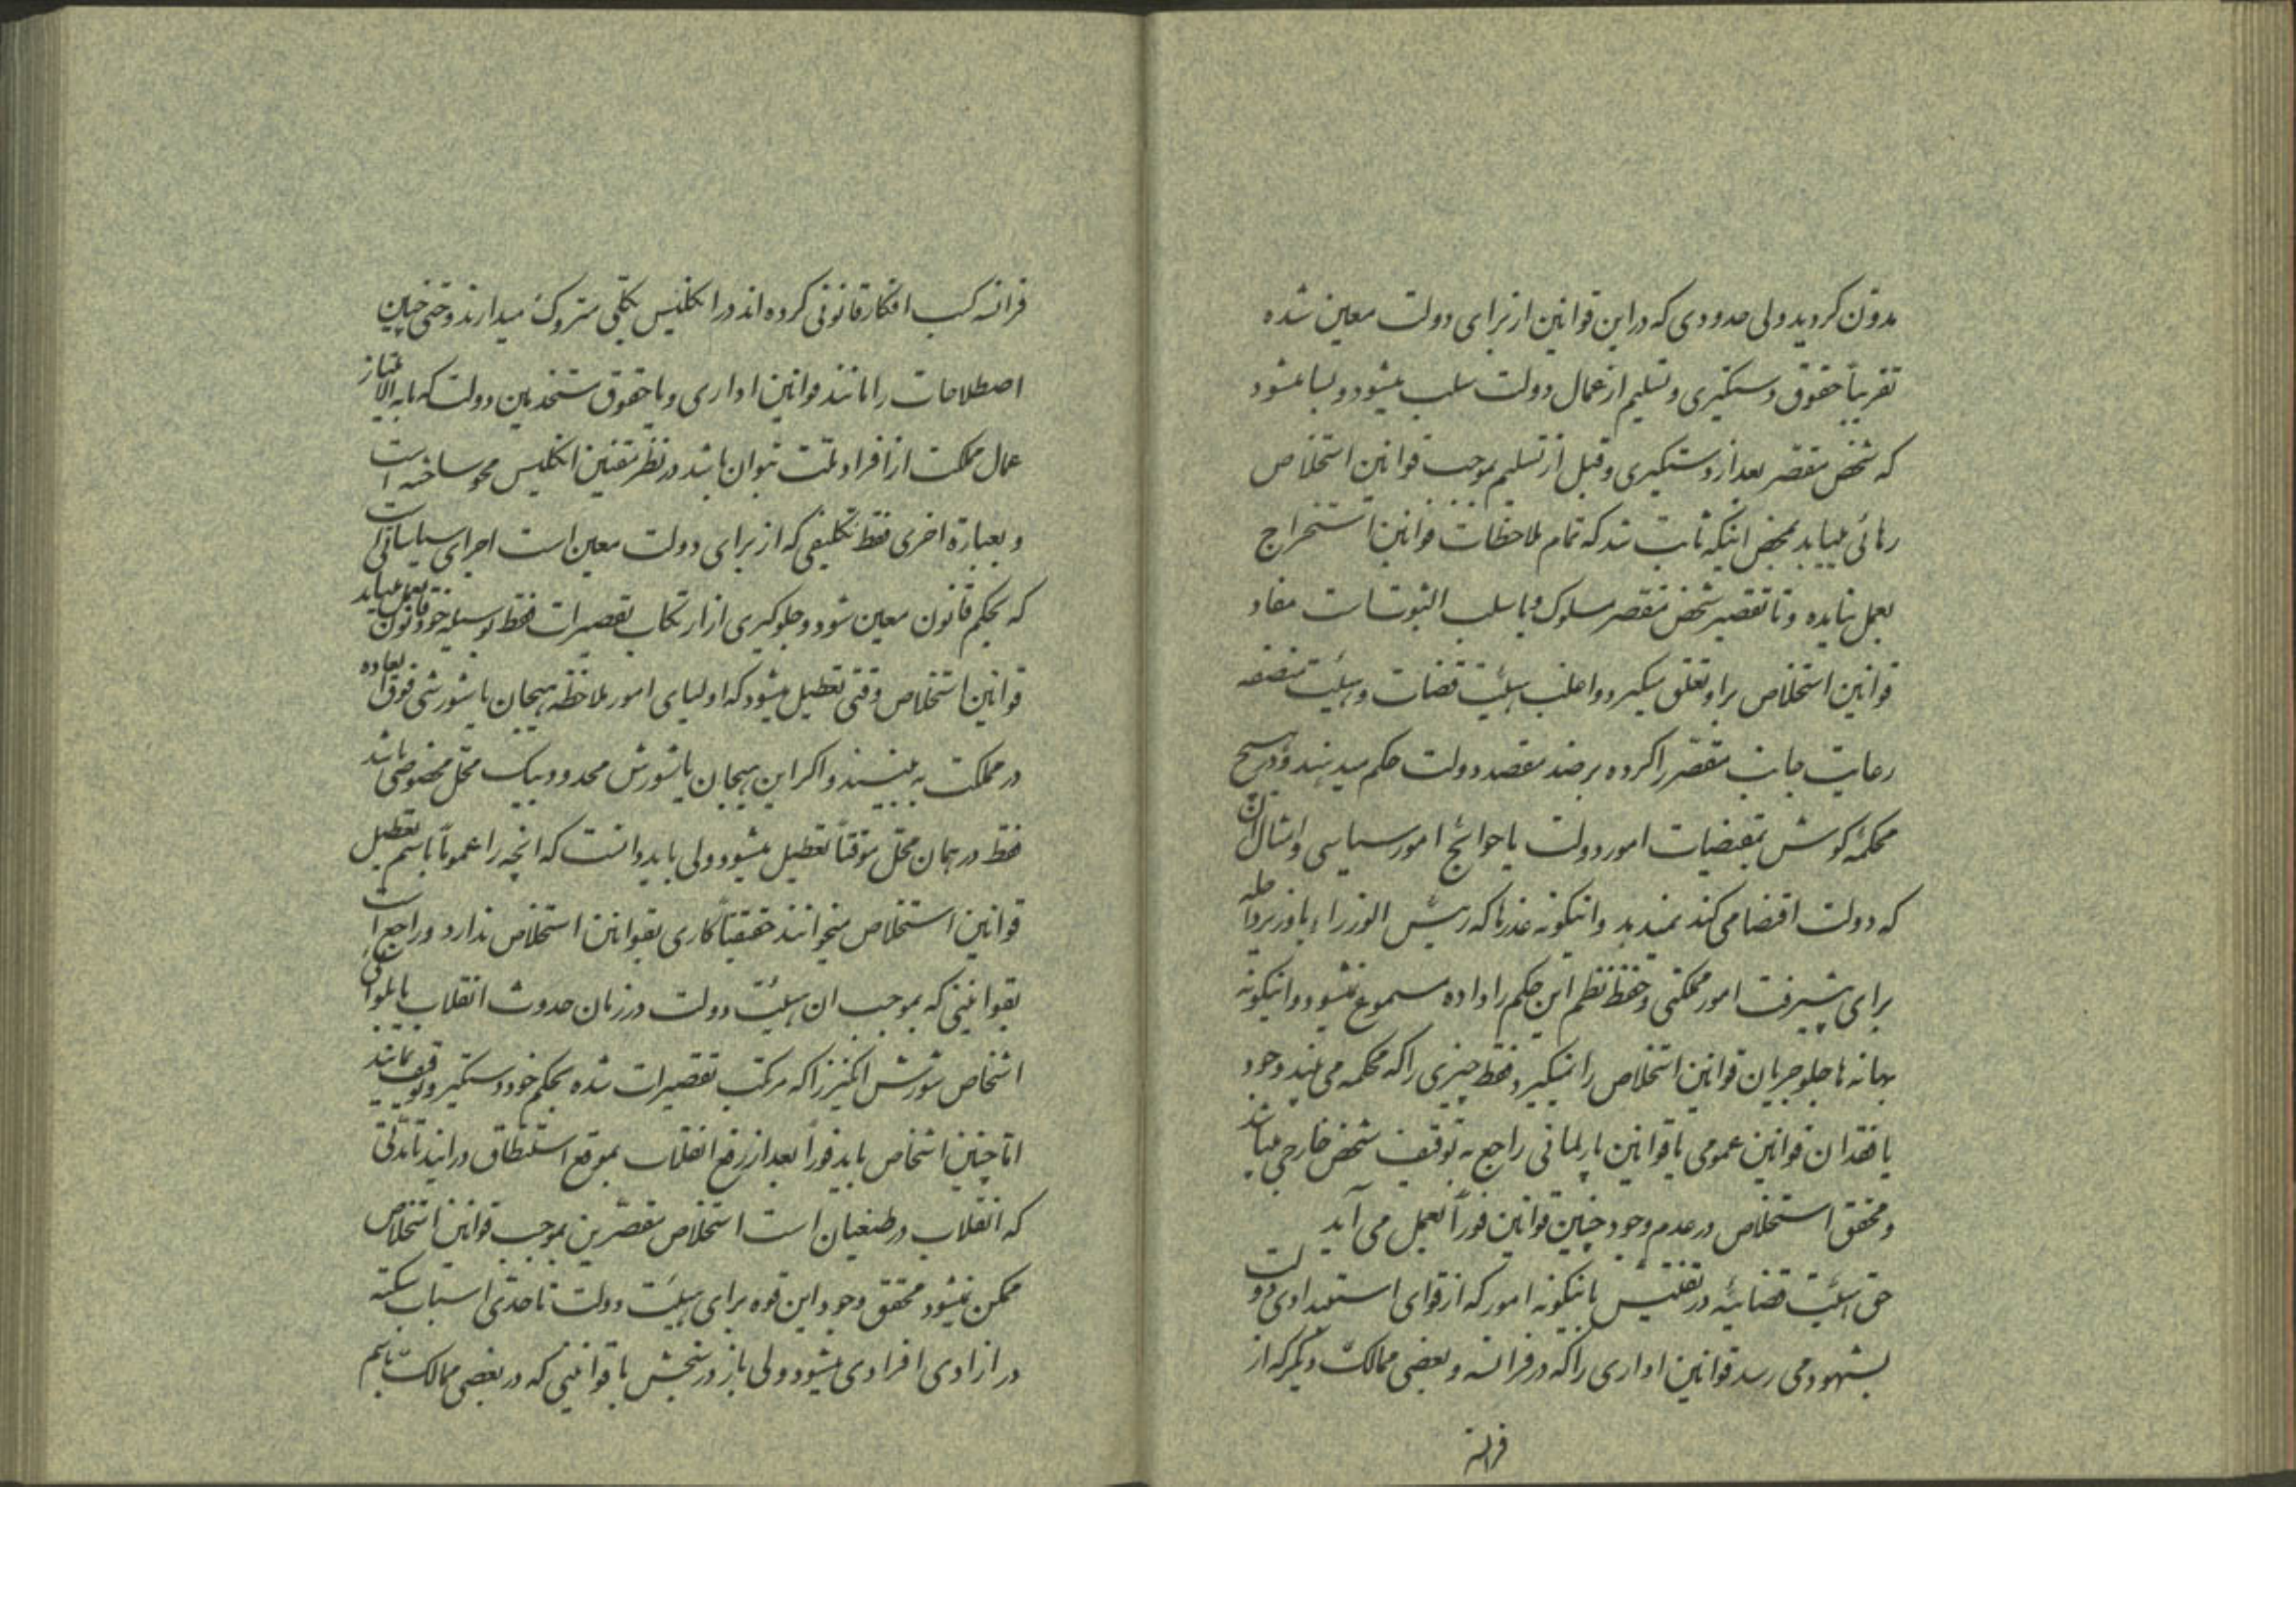 مدون کردید ولی حدودی که در این قوانین از برای دولت معین شده
تقریباً حقوق دستکیری و تسلیم از عمال دولت سلب میشود و بسا میشود
که شخص مقصر بعد از دستکیری و قبل از تسلیم بموجب قوانین استخلاص
رهائی مییابد بمحض اینکه ثابت شد که تمام ملاحظات قوانین استخراج
بعمل نیایده و تا تقصیر شخص مقصر مسلوک و یا سلب الثبوتات مفاد
قوانین استخلاص بر او تعلق میکیرد و اغلب هیئت قضات و هیئت منصفه
رعایت جانب مقصر را کرده بر ضد مقصد دولت حکم میدهند و در هیچ
محکمهٔ کوش بمقتضیات امور دولت یا حوائج امور سیاسی و امثال آن
که دولت اقتضا می کند نمیدهد و اینکونه عذرها که رئیس الوزراء یا وزیر داخله
برای پیشرفت امور مملکتی و حفظ نظم این حکم را داده مسموع نمیشود و اینکونه
بهانه ها جلو جریان قوانین استخلاص را نمیکیرد فقط چیزی را که محکمه می بیند وجود
یا فقدان قوانین عمومی یا قوانین پارلمانی راجع به توقیف شخص خارجی میباشد
و محقق استخلاص در عدم وجود چنین قوانین فوراً بعمل می آید
حق هیئت قضائیه در تفتیش باینکونه امور که از قوای استبدادی دولت
بشهود می رسد قوانین اداری را که در فرانسه و بعضی ممالک دیگر که از
فرانسه
فرانسه کسب افکار قانونی کرده اند در انکلیس بکلی متروک میدارند و حتی چنین
اصطلاحات را مانند قوانین اداری و یا حقوق مستخدمین دولت که ما به الامتیاز
عمال مملکت از افراد ملت بتوان باشد در نظر مقننین انکلیس محو ساخته است
و بعبارة اخری فقط تکلیفی که از برای دولت معین است اجرای سیاساتی است
که بحکم قانون معین شود و جلوکیری از ارتکاب تقصیرات فقط بوسیله خود قانون بعمل میاید
قوانین استخلاص وقتی تعطیل میشود که اولیای امور ملاحظه هیجان یا شورشی فوق العاده
در مملکت به بینند و اکر این هیجان یا شورش محدود بیک محل مخصوصی باشد
فقط در همان محل موقتاً تعطیل میشود ولی باید دانست که انچه را عموماً باسم تعطیل
قوانین استخلاص میخوانند حقیقتاً کاری بقوانین استخلاص ندارد و راجع است
بقوانینی که بموجب ان هیئت دولت در زمان حدوث انقلاب یا بلوائی
اشخاص شورش انکیز را که مرتکب تقصیرات شده بحکم خود دستکیر و توقیف نمایند
اما چنین اشخاص باید فوراً بعد از رفع انقلاب بموقع استنطاق درایند تا مدتی
که انقلاب در طغیان است استخلاص مقصرین بموجب قوانین استخلاص
ممکن نمیشود محقق وجود این قوه برای هیئت دولت تا حدی اسباب سکته
در ازادی افرادی میشود ولی باز در سنجش با قوانینی که در بعضی ممالک باسم